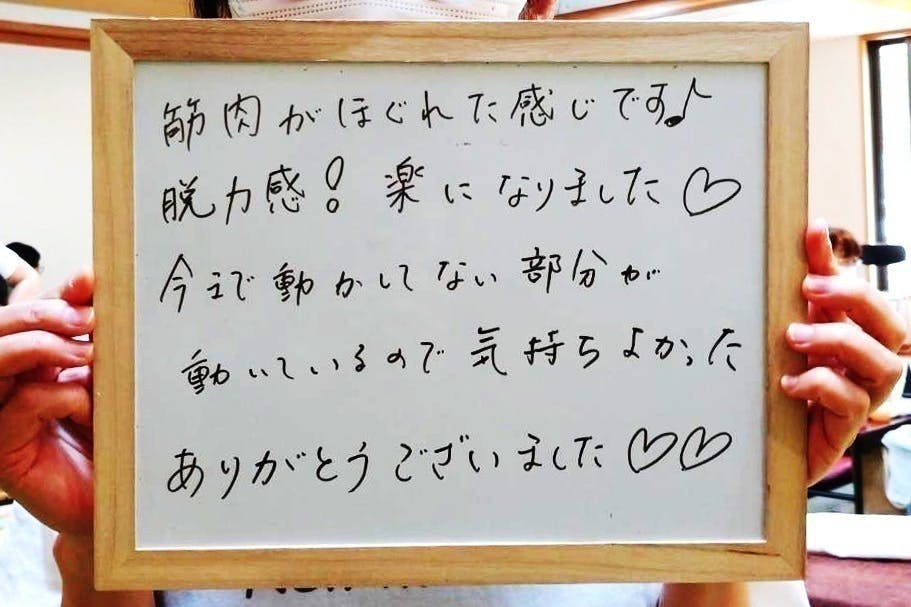 筋肉がほぐれた感じです♪
脱力感！楽になりました♡
今まで動かしてない部分が
動いているので気持ちよかった
ありがとうございました♡♡